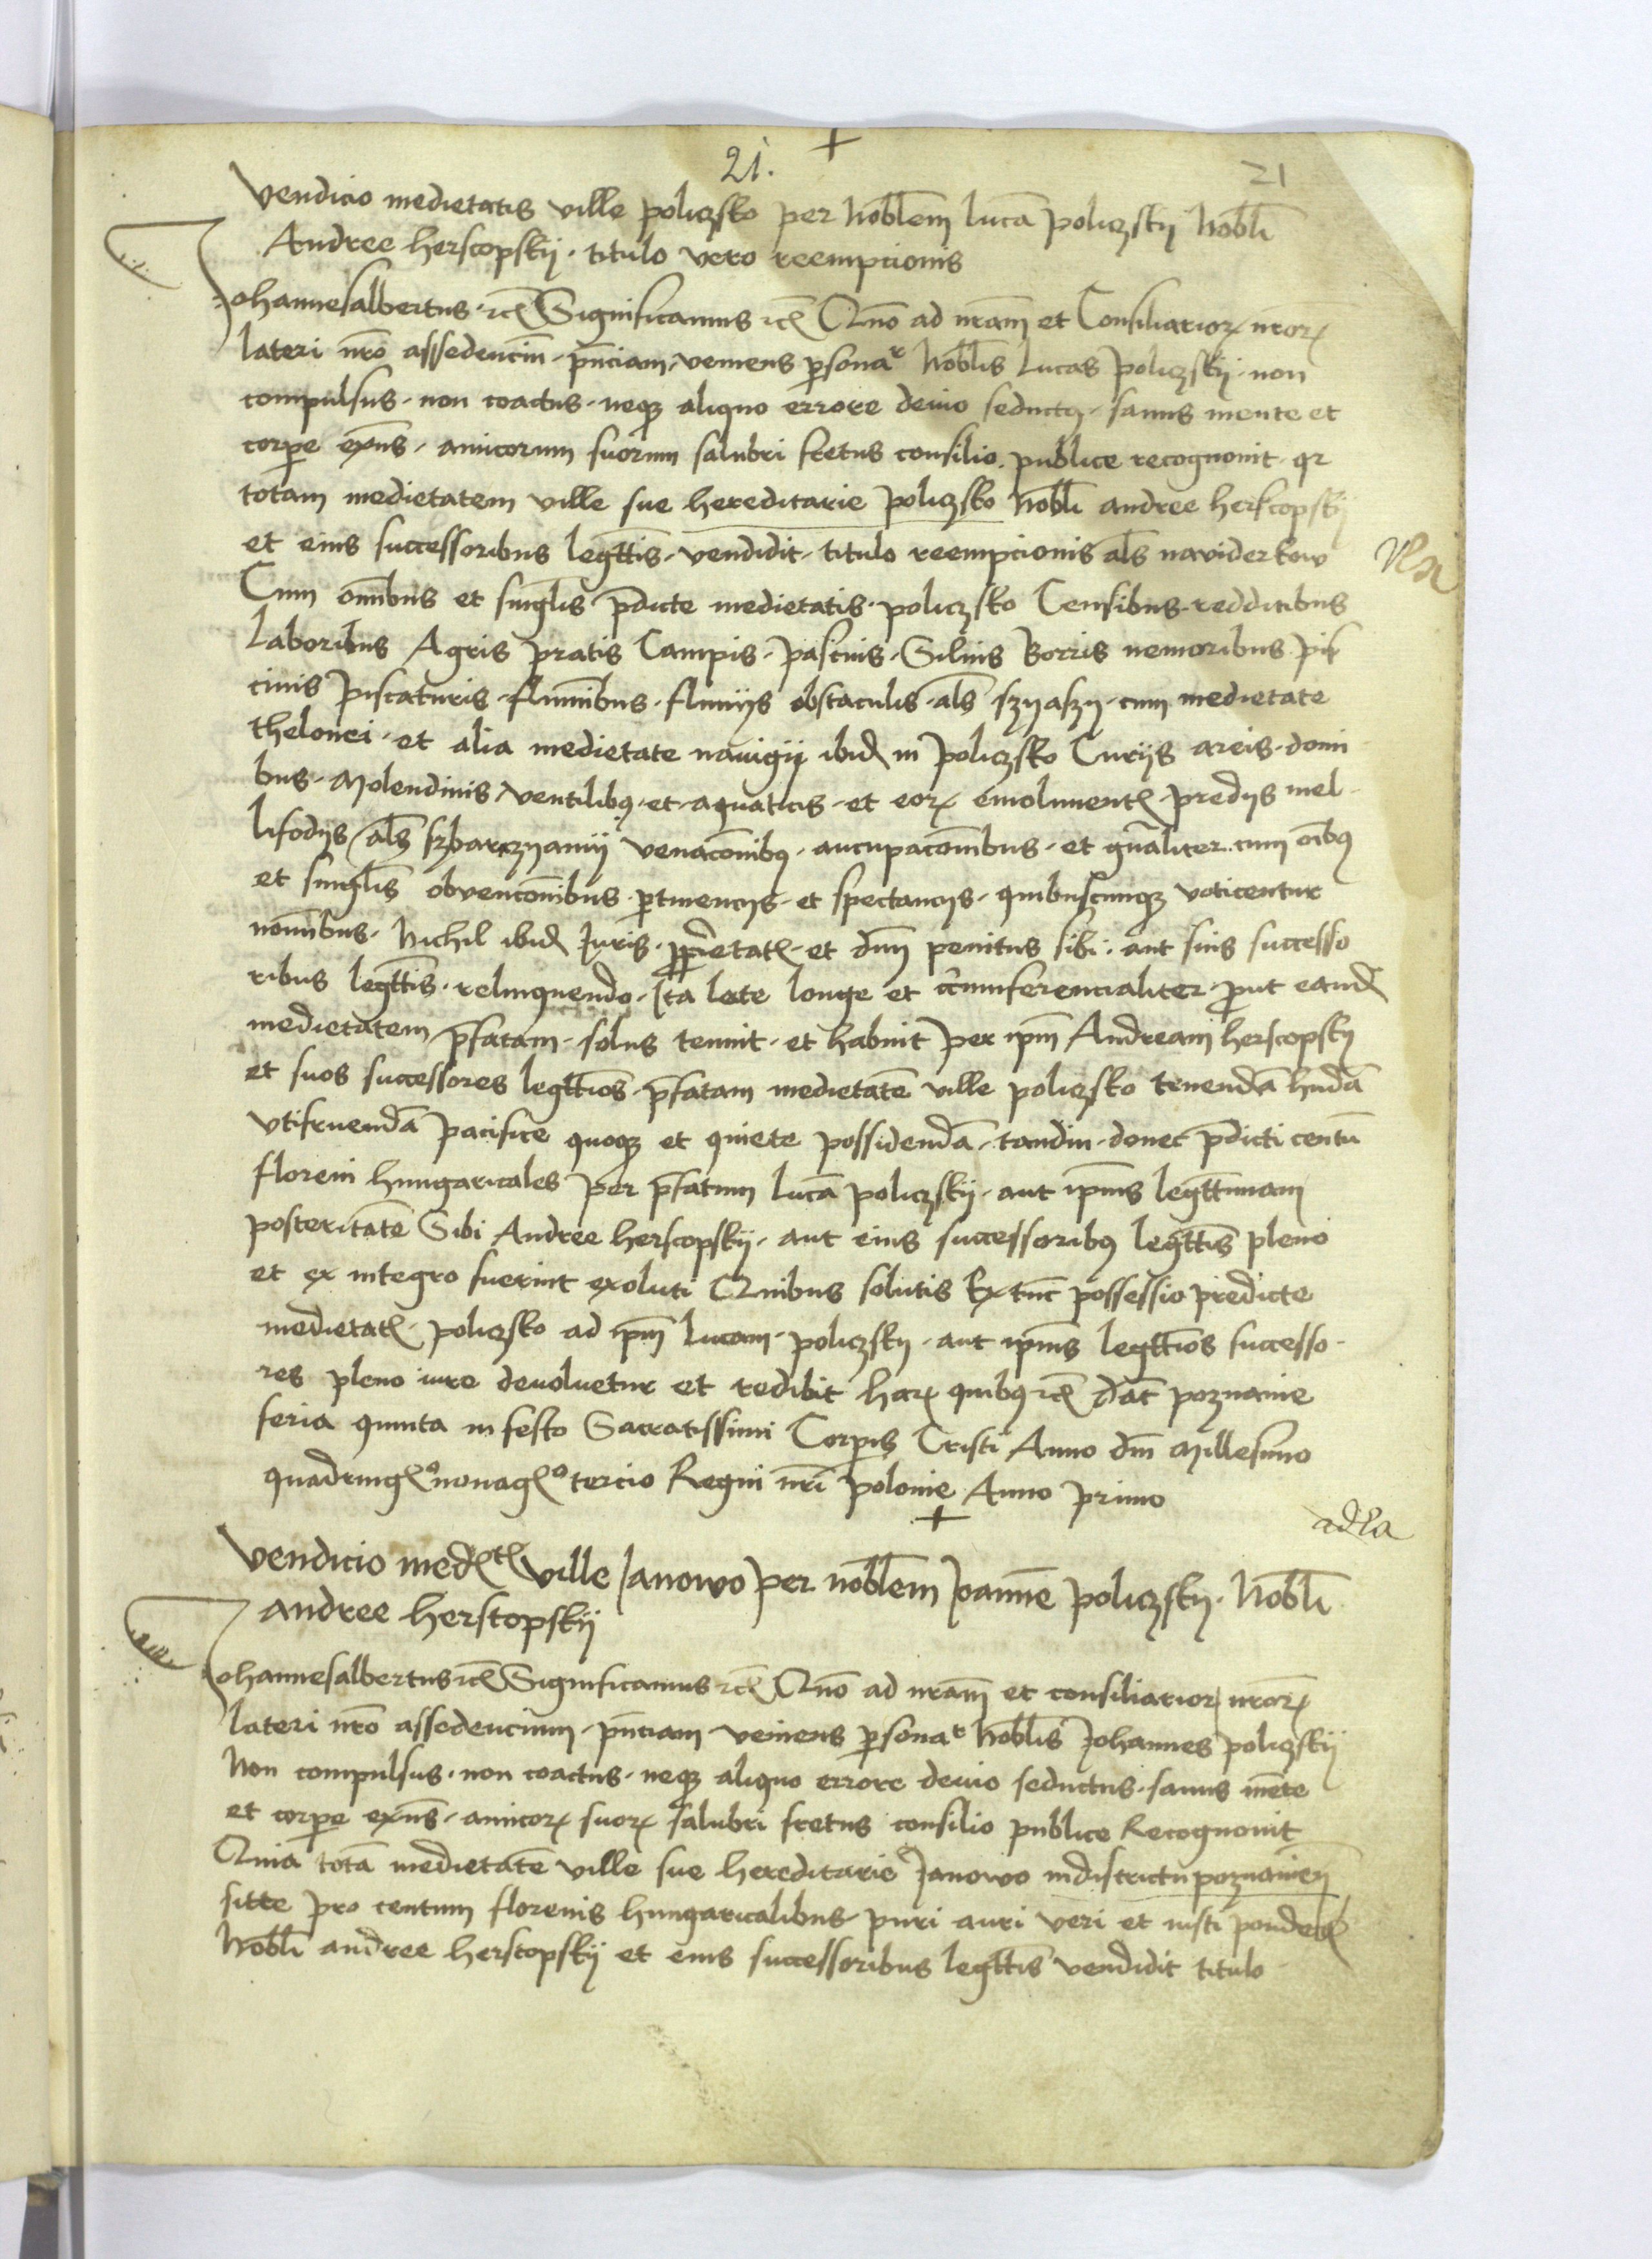 21. +
21
Vendicio medietatis ville policzsko per nobłem lucā policzskij nobli
Andree herscopskij · titulo vero reempcionis
Johannesalbertus · etc̄ Significamus etc̄ Quo͞ ad nrām et Consiliarioꝝ nroꝝ
lateri nr͞o assedenciū · pn̄ciam · veniens ꝑsonar noblis Lucas policzskij · non
compulsus · non coactus · neqꝫ aliquo errore deuio seductꝰ · sanus mente et
corꝑe exn̄s · amicorum suorum salubri fretus consilio publice recognouit · qr
totam medietatem ville sue hereditarie policzsko nobli andree herscopskij
et eius successoribus legtt̄is · vendidit · titulo reempcionis al͞s naviderkow
Cum om̄ibus et sinḡlis p̄dicte medietatis · policzsko Censibus · redditibus
laboribus Agris pratis Campis · pascuis · Siluis Borris nemoribus pis
cinis piscaturis · flumīibus · fluuijs obstaculis · al͞s · cum medietate
thelonei · et alia medietate nauigij ibidꝫ in policzsko Curijs areis · domi
bus · Molendinis ventilibꝰ · et · aquaticis · et eoꝝ emolumentꝭ · predijs mel
lifodijs al͞s venacōnibꝰ · aucupacōnibus · et gn̄aliter cum oībꝰ
et sinḡlis obvencōnibus · ꝑtinencijs · et spectancijs · quibuscunqꝫ voticentur
nomīibus · Nichil ibidꝫ Juris · ꝓprietatꝭ · et dn̄ij penitus sibi · aut suis successo
ribus legtt̄is · relinquendo · Ita late longe et circumferencialiter · ꝓut eandꝫ
medietatem p̄fatam · solus tenuit · et habuit per ip̄m Andream herscopskij
et suos successores legtt̄ios p̄fatam medietatē ville policzsko tenendā hn̄dā
vtifruendā pacifice quoqꝫ et quiete possidendā · tamdiu · donec p̄dicti centū
floreni hungaricales per p̄fatum lucā policzskij · aut ip̄ius legtt̄imam
posteritatē Sibi Andree herscopskij · aut eius successoribꝰ legtt̄is pleno
et ex integro fuerint exoluti Quibus solutis Ex tn̄c possessio predicte
medietatꝭ · policzsko ad ip̄m lucam · policzskij · aut ip̄ius legtt̄ios successo
res pleno iure deuoluetur et redibit haꝝ quibꝰ etc̄ dat͞ poznanie
feria quinta in festo Sacratissimi Corꝑis Cristi Anno dn̄i Millesimo
quadringꝭº nonagꝭº tercio Regni nr͞i polonie Anno primo
+
adla
Vendicio medꝭtꝭ ville Janowo per nobłem Joannē policzskij · Nobli
andree herstopskij
Johannesalbertus etc̄ Significamus etc̄ Quo͞ ad nrām et consiliarioꝝ nroꝝ
lateri nr͞o assedencium · pn̄ciam veniens ꝑsonar noblis Johannes policzskij
Non compulsus · non coactus · neqꝫ aliquo errore deuio seductus · sanus mēte
et corꝑe exn̄s · amicoꝝ suoꝝ salubri fretus consilio publice Recognouit
Quia totā medietatē ville sue hereditarie Janowo in districtu poznanien̄
sitte pro centum florenis hungaricalibus puri auri veri et iusti ponderꝭ
Nobli andree herstopskij et eius successoribus legtt̄is vendidit titulo